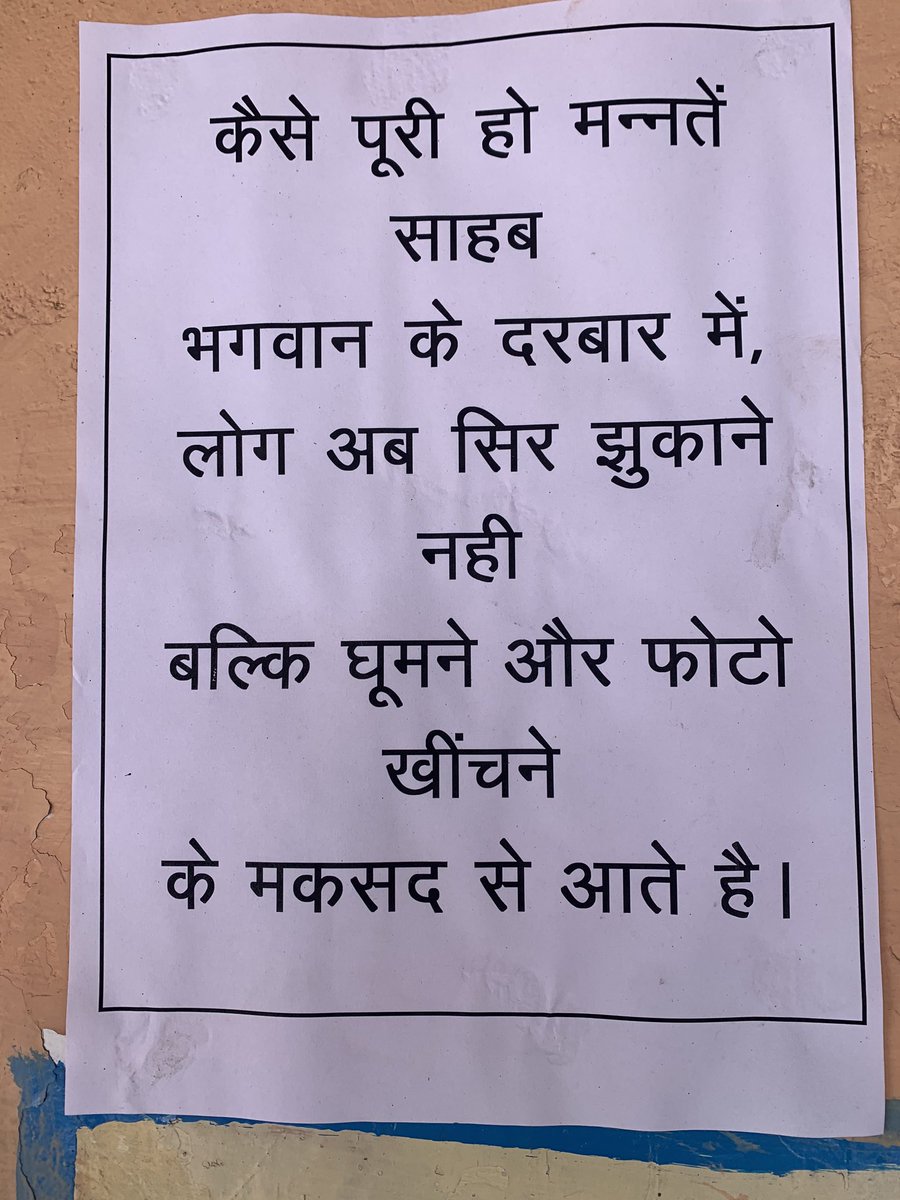 कैसे पूरी हो मन्नतें
साहब
भगवान के दरबार में,
लोग अब सिर झुकाने
नही
बल्कि घूमने और फोटो
खींचने
के मकसद से आते है।